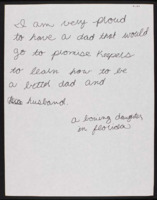 I am very proud
to have a dad that would
go to promise keepers
to learn how to be
a better dad and
husband.
a loving daughter
in florida